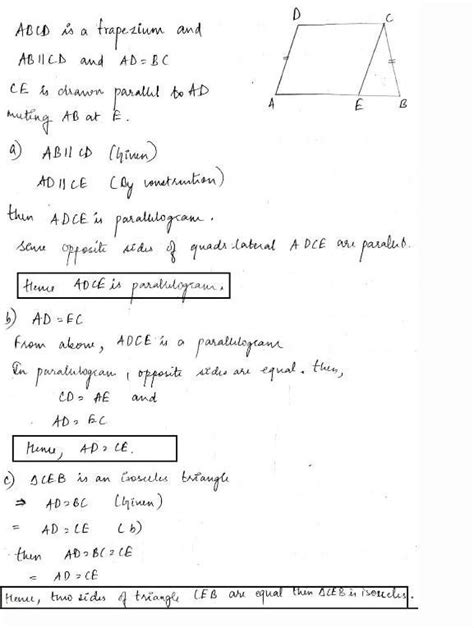 ABCD is a trapezium and
AB || CD and AD = BC
CE is drawn parallel to AD
muting AB at E.
D
C
A
E
B
a) AB || CD (Given)
AD || CE (By construction)
then ADCE is parallelogram.
sence opposite sides of quadrilateral ADCE are parallel.
Hence ADCE is parallelogram.
b) AD = EC
From above, ADCE is a parallelogram
In parallelogram, opposite sides are equal. then,
CD = AE and
AD = EC
Hence, AD = CE.
c) ΔCEB is an isosceles triangle
⇒ AD = BC (Given)
= AD = CE (b)
then AD = BC = CE
= AD = CE
Hence, two sides of triangle CEB are equal then ΔCEB is isosceles.